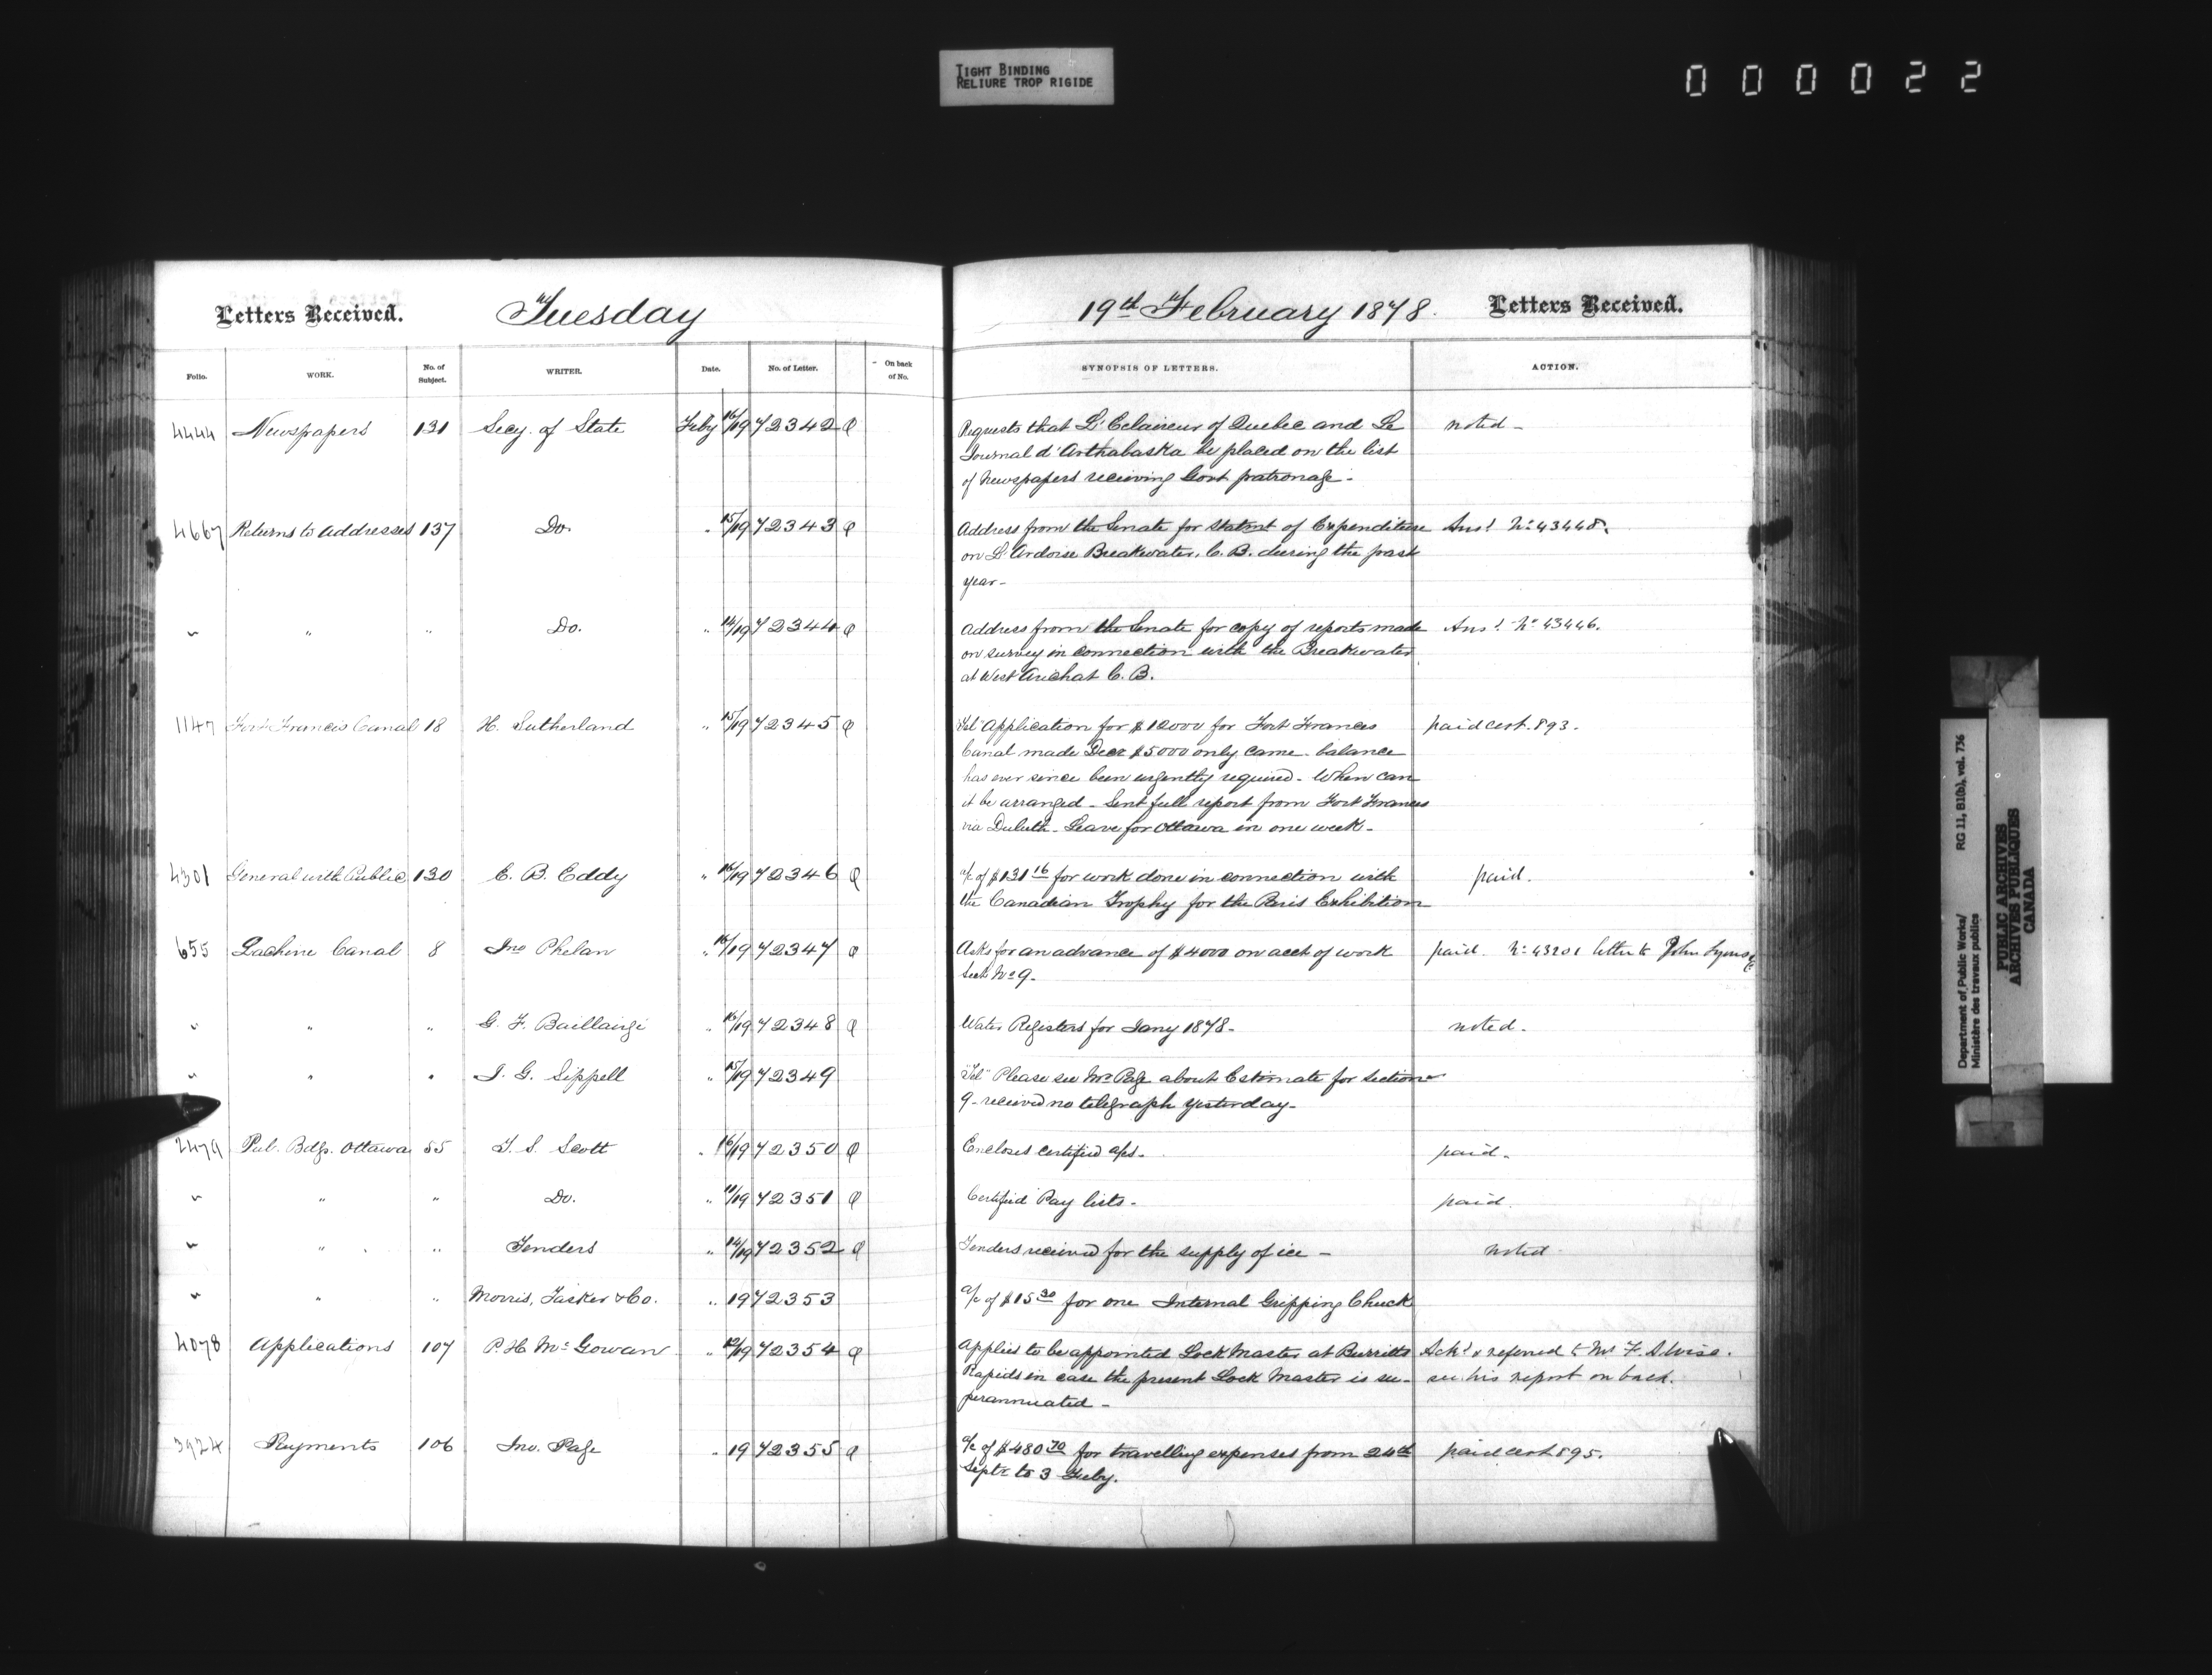 TIGHT BINDING
RELIURE TROP RIGIDE
000022
Letters Received. Tuesday 19th February 1878. Letters Received.
Folio. WORK. No. of Subject. WRITER. Date. No. of Letter. On back of No. SYNOPSIS OF LETTERS. ACTION.
4444 Newspapers 131 Secy. of State Feby 16/19 72342 Requests that L'Eclaireur of Quebec and Le noted -
Journal d'Arthabaska be placed on the list
of Newspapers recieving Govt patronage -
4667 Returns to Addresses 137 Do. " 15/19 72343 Address from the Senate for Statmt of Expenditure Ansd No 43448.
on L'Ardoise Breakwater, C. B. during the past
year -
" " " Do. " 14/19 72344 Address from the Senate for copy of reports made Ansd No 43446.
on survey in connection with the Breakwater
at West Arichat C. B.
1147 Fort Francis Canal 18 H. Sutherland " 15/19 72345 "Tel" Application for $12000 for Fort Frances paid cert. 893.
Canal made Decr $5000 only came - balance
has ever since been urgently required - When can
it be arranged - Sent full report from Fort Frances
via Duluth - Leave for Ottawa in one week -
4301 General with Public 130 E. B. Eddy " 16/19 72346 a/c of $131 16 for work done in connection with paid.
the Canadian Trophy for the Paris Exhibition
655 Lachine Canal 8 Jno Phelan " 16/19 72347 Asks for an advance of $4000 on acct of work paid. No 43201 letter to John Lyons
Sectn No 9 -
" " " G. F. Baillairgé " 16/19 72348 Water Registers for Jany 1878 - noted -
" " " J. G. Sippell " 15/19 72349 "Tel" Please see Mr Page about Estimate for section
9 - received no telegraph yesterday -
2479 Pub. Bdgs. Ottawa 55 T. S. Scott " 16/19 72350 Encloses certified a/cs - paid -
" " " Do. " 11/19 72351 Certified Pay lists - paid.
" " " Tenders " 14/19 72352 Tenders received for the supply of ice - noted
" " " Morris, Tasker & Co. " 19 72353 a/c of $15 30 for one Internal Gripping Chuck
4078 Applications 107 P. H. McGowan " 12/19 72354 Applies to be appointed Lock Master at Burritts Ackd & referred to Mr F. A. Wise.
Rapids in case the present Lock Master is su- see his report on back.
perannuated -
3924 Payments 106 Jno. Page " 19 72355 a/c of $480 70 for travelling expenses from 24th paid cert 895.
Septr to 3 Feby.
Department of Public Works/ RG 11, B1(b), vol. 736
Ministère des travaux publics
PUBLIC ARCHIVES
ARCHIVES PUBLIQUES
CANADA